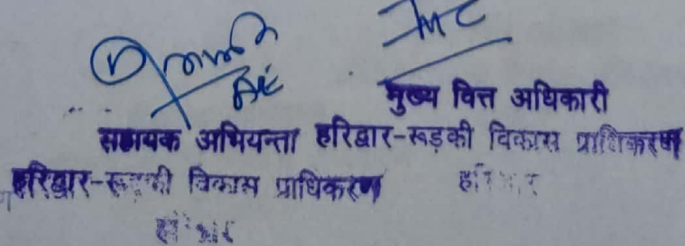 AE
मुख्य वित्त अधिकारी
सहायक अभियन्ता हरिद्वार-रूड़की विकास प्राधिकरण
हरिद्वार-रूड़की विकास प्राधिकरण हरिद्वार
हरिद्वार